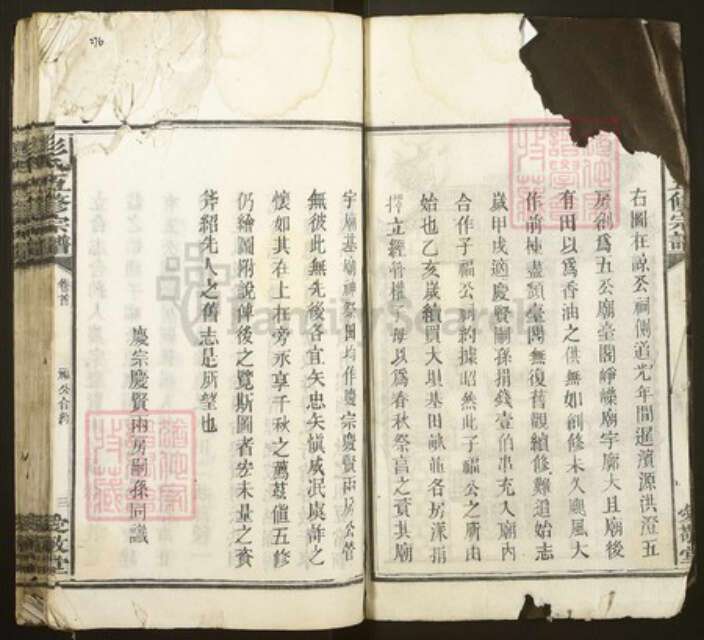 右圖在諒公祠側道光年間暹濱源洪澄五
房創爲五公廟臺閣崢嶸廟宇廓大且廟後
有田以爲香油之供無如創修未久颶風大
作前棟盡頹臺閣無復舊觀續修難遒始志
歲甲戌適慶賢嗣孫捐錢壹伯串充入廟內
合作子福公祠約據昭然此子福公之所由
始也乙亥歲續買大垻基田畝並各房潔捐
擇立經管權子母以爲春秋祭言之資其廟
宇廟基廟神祭田均作慶宗慶賢兩房公管
無彼此無先後各宜矢忠矢愼咸泯虞詐之
懷如其在上在旁永享千秋之薦茲値五修
仍繪圖附說俾後之覽斯圖者宏未量之資
斧紹先人之舊志是所望也
慶宗慶賢兩房嗣孫同識
彭氏五修宗譜
卷首
福公合約
三
愛敬堂
五修宗譜
276
FamilySearch